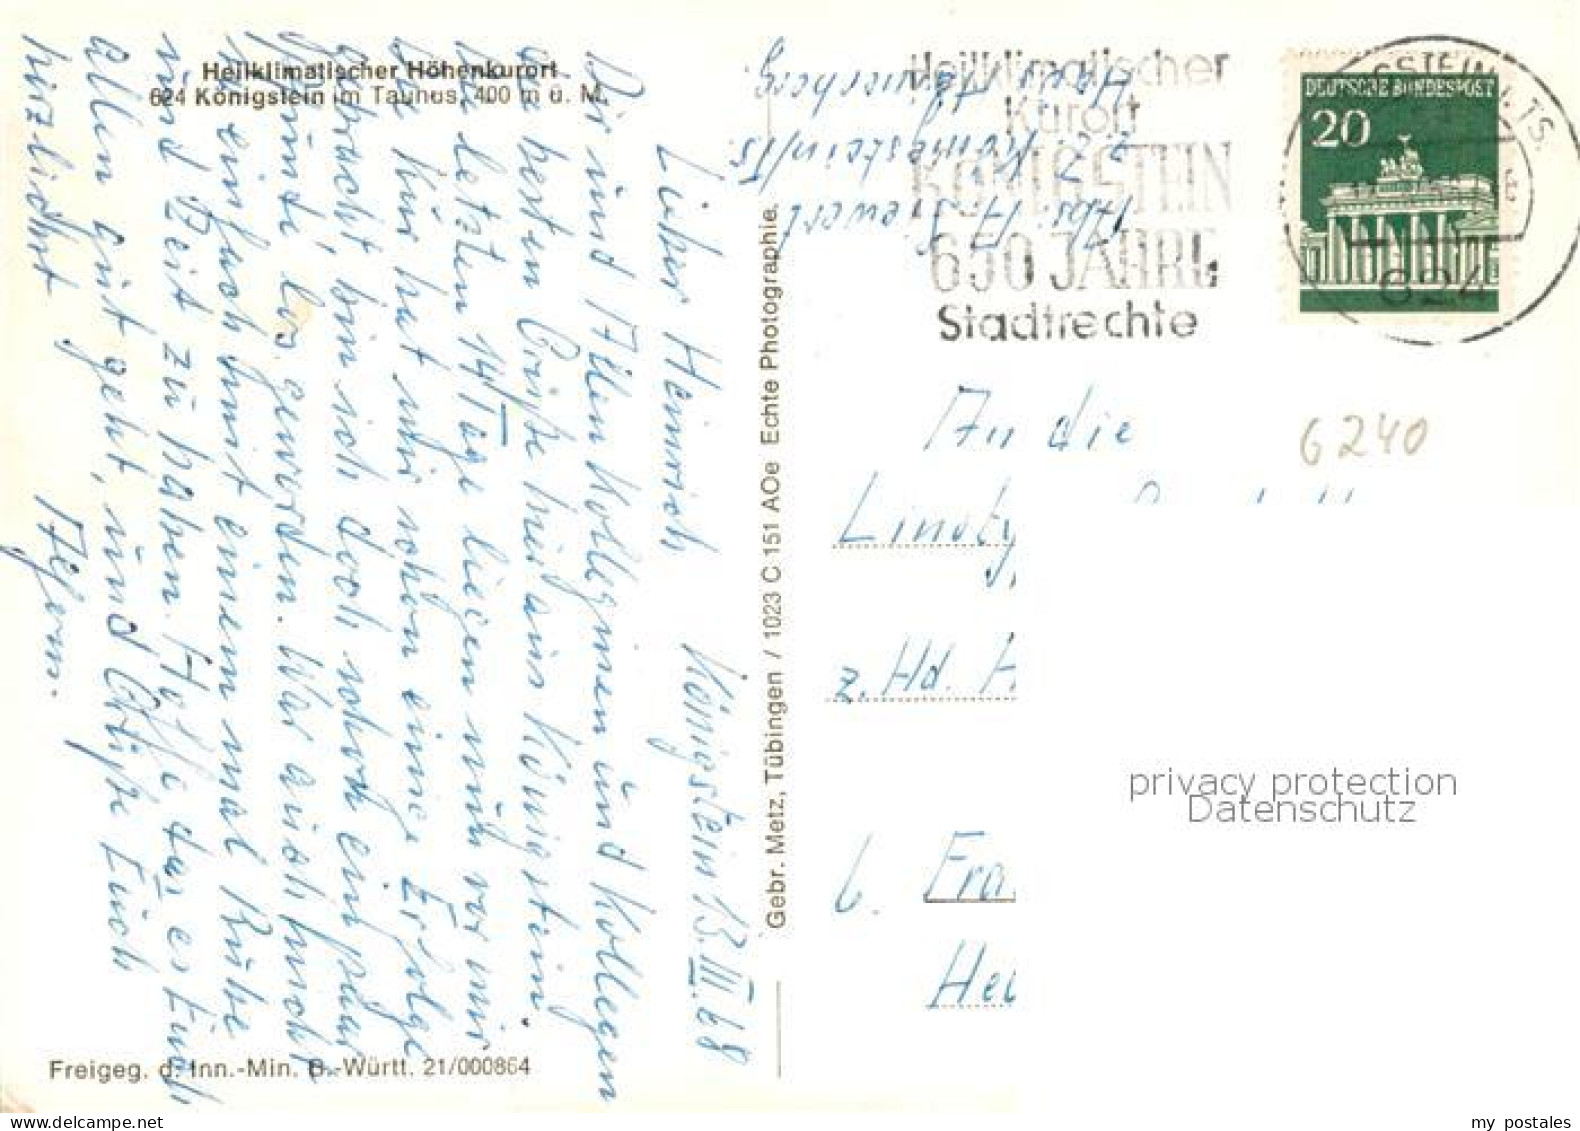 Heilklimatischer Höhenkurort
624 Königstein im Taunus, 400 m ü. M.
Königstein 13.III.68
Lieber Heinrich
Dir und Allen Kolleginen und Kollegen
die besten Grüße hier aus Königstein.
Die letzten 14 Tage liegen nun vor mir
Die Kur hat mir schon einige Erfolge
gebracht, bin ich doch schon ein paar
Pfunde los geworden. War auch nicht
einfach mit einem mal Ruhe
und Zeit zu haben. Hoffe das es Euch
allen gut geht, und Grüße Euch
herzlichst
Freigeg. d. Inn.-Min. B.-Württ. 21/000864
Gebr. Metz, Tübingen / 1023 C 151 AOe Echte Photographie.
Abs. A. Siewert
z.Z. Königstein/Ts.
Haus
Heilklimatischer
Kurort
KÖNIGSTEIN
650 JAHRE
Stadtrechte
GSTEIN, TS.
624
DEUTSCHE BUNDESPOST
20
An die
6240
Linoty
z. Hd. H
6. Fra
Hei
privacy protection
Datenschutz
my postales